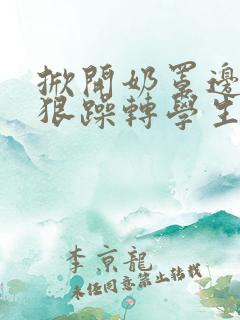 掀開奶罩邊
狠躁轉學生
李京龍
未经同意禁止转载